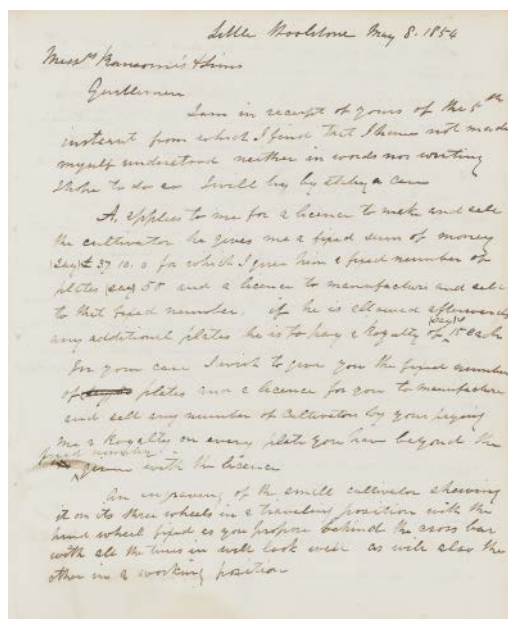 Little Woolstone May 8. 1854
Messrs Ransomes & Sims
Gentlemen
I am in receipt of yours of the 5th
instant from which I find that I have not made
myself understood neither in words nor writing
I hope to do so I will try by stating a case
A, applies to me for a licence to make and sell
the cultivator he gives me a fixed sum of money
(say) £ 37. 10. 0 for which I give him a fixed number of
plates (say) 50 and a licence to manufacture and sell
to that fixed number. if he is allowed afterwards
any additional plates he is to pay a Royalty of (say) 15 each
In your case I wish to give you the fixed number
of plates and a licence for you to manufacture
and sell any number of Cultivators by your paying
me a Royalty on every plate you have beyond the
fixed number
given with the licence
An engraving of the small cultivator shewing
it on its three wheels in a traveling position with the
hind wheel fixed as you propose behind the cross bar
with all the tines in will look well as will also the
other in a working position